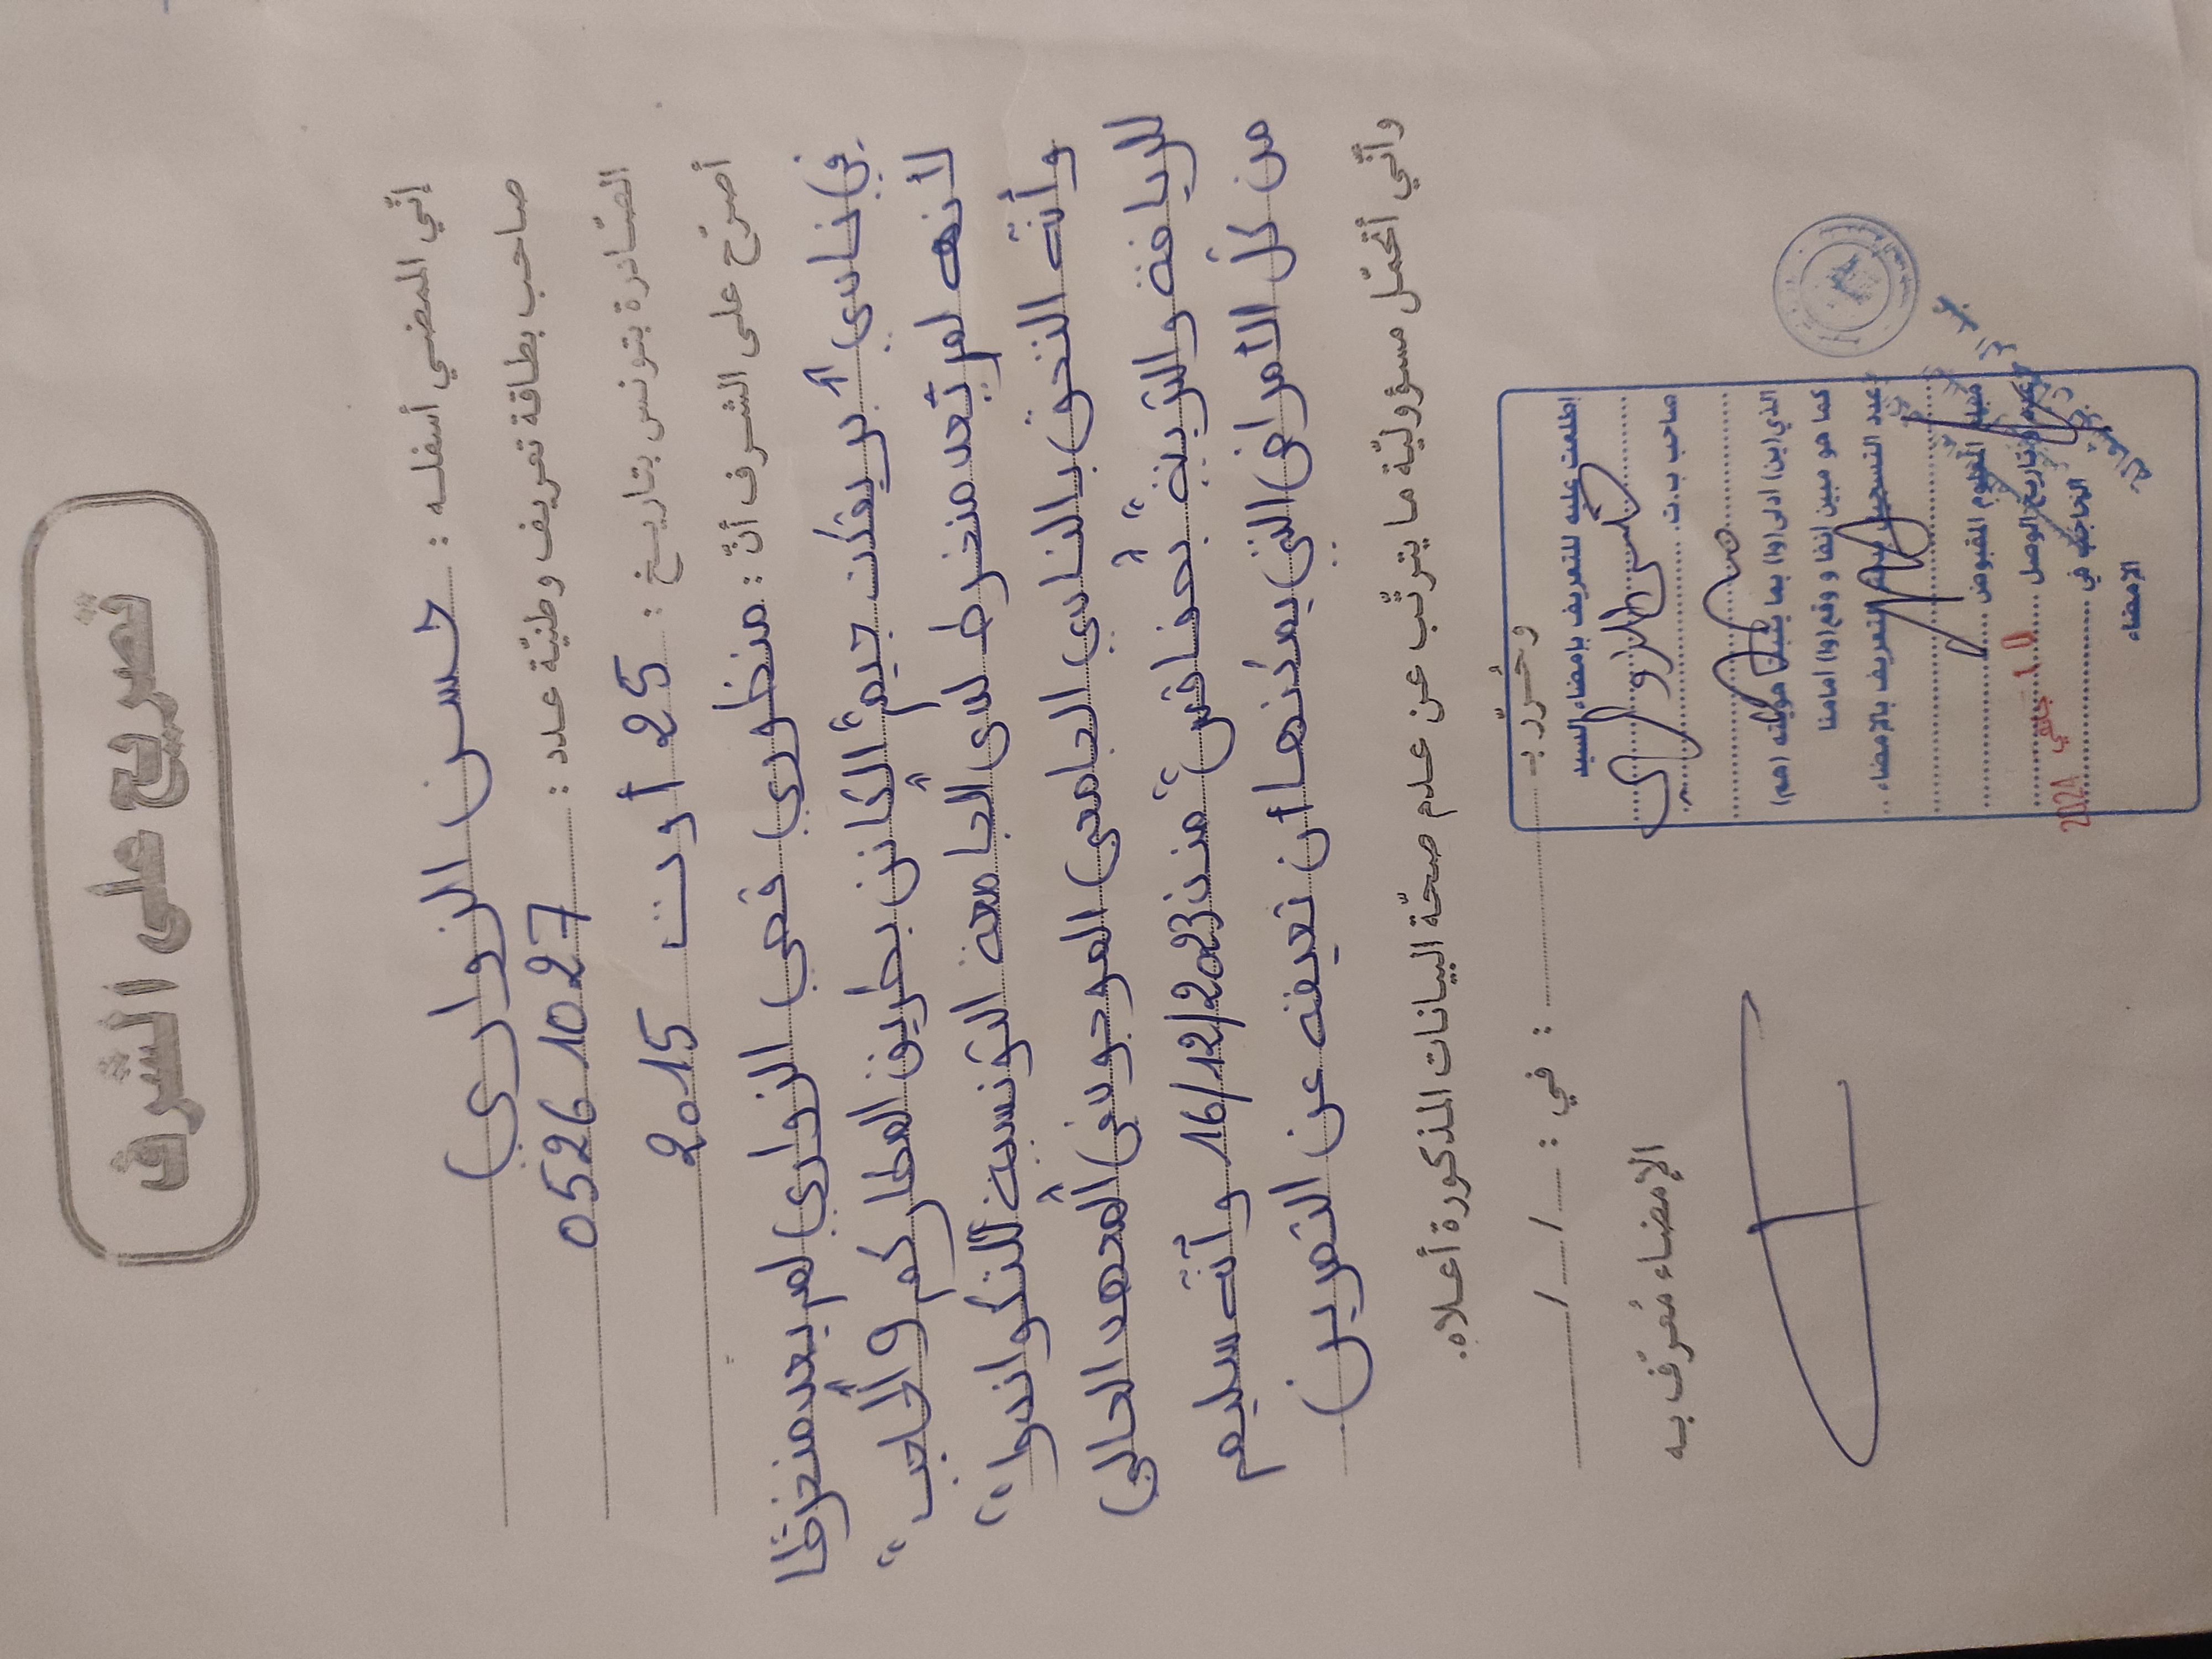 تصريح على الشرف
إنّي الممضي أسفله : حسن الزواري
صاحب بطاقة تعريف وطنيّة عدد : 05261027
الصّادرة بتونس بتاريخ : 25 أوت 2015
أصرّح على الشرف أنّ : منظوري قصي الزواري لم يعد منخرطا
في نادي " بريفكت جيم" الكائن بطريق العطار كم و
لأنه لم يعد منخرط لدى الجامعة التونسية للتكواندوا،
وأنه التحق بالنادي الجامعي الموجود في المعهد العالي
للرياضة والتربية بصفاقس منذ 16/12/2023 وأنه سليم
من كل الأمراض التي يمكنها أن تعيقه عن التمرين
وأنّي أتحمّل مسؤوليّة ما يترتّب عن عدم صحّة البيانات المذكورة أعلاه.
وحُرّر بـ : في :
الإمضاء مُعرّف به
إطلعت عليه للتعريف بإمضاء السيد
الزواري
صاحب ب.ت.
الذي(ين) ادلى(وا) بما يثبت هويته (هم)
كما هو مبين إنفا و وقع(وا) امامنا
عدد التسجيل بدفتر التعريف بالامضاء
مبلغ المعلوم المقبوض
عدد وتاريخ الوصل
الحاجب في
جانفي 2024
الإمضاء